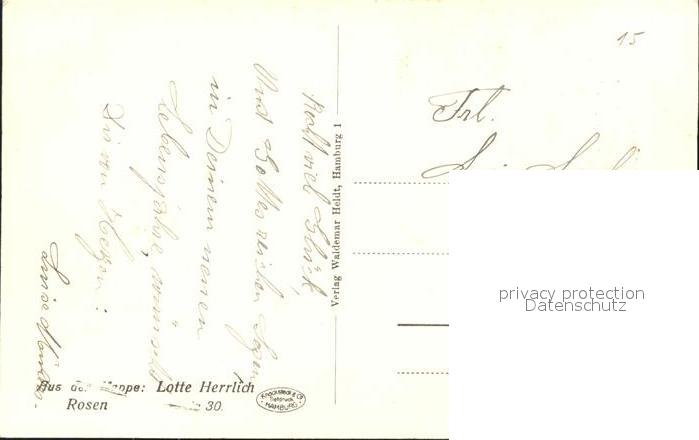 Recht viel Glück,
Und Gottes reichen Segen
in Deinem neuen
Lebensjahre, wünscht
Dir von Herzen:
Luise
Verlag Waldemar Heldt, Hamburg 1
15
Frl.
privacy protection
Datenschutz
Aus der Mappe: Lotte Herrlich
Rosen 30
Knackstedt & Co
Tiefdruck
HAMBURG